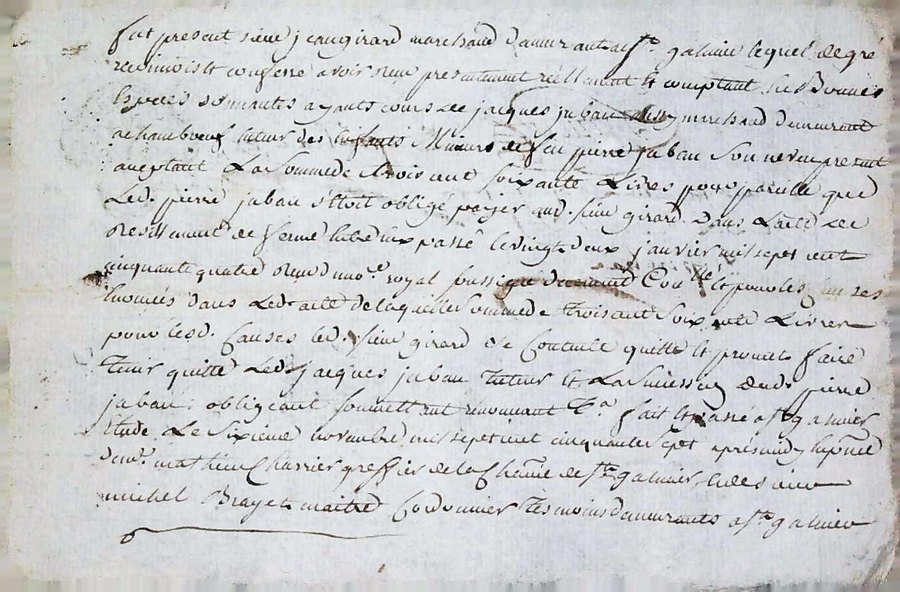 fut present sieur jean girard marchand demeurant a st. galmier lequel de gré
reconnoit et confesse avoir receu presentement réellement et comptant en Bonnes
Especes sonnantes ayants cours de jacques jaban marchand demeurant
a chambœuf tuteur des enfants Mineurs de feu pierre jaban son neveu present
acceptant La somme de trois cent soixante Livres pour pareille que
Led. pierre jaban s'étoit obligé payer aud. sieur girard dans L'acte de
de ferme entre eux passé le vingt deux janvier mil sept cent
cinquante quatre receu du no.re royal soussigné et pour les
dans Led. acte de laquelle somme de trois cent soixante Livres
pour lesd. Causes led. sieur girard se Contente quitte et promet faire
tenir quitte Led. jacques jaban tuteur et La succession dud. pierre
jaban. obligeant soumettant renonceant &a. fait et passé a st galmier
étude Le sixieme novembre mil sept cent cinquante sept aprés midy
de me. mathieu Charrier greffier de la de st. galmier, et de sieur
michel Brayet maitre Cordonnier temoins demeurants a st. galmier